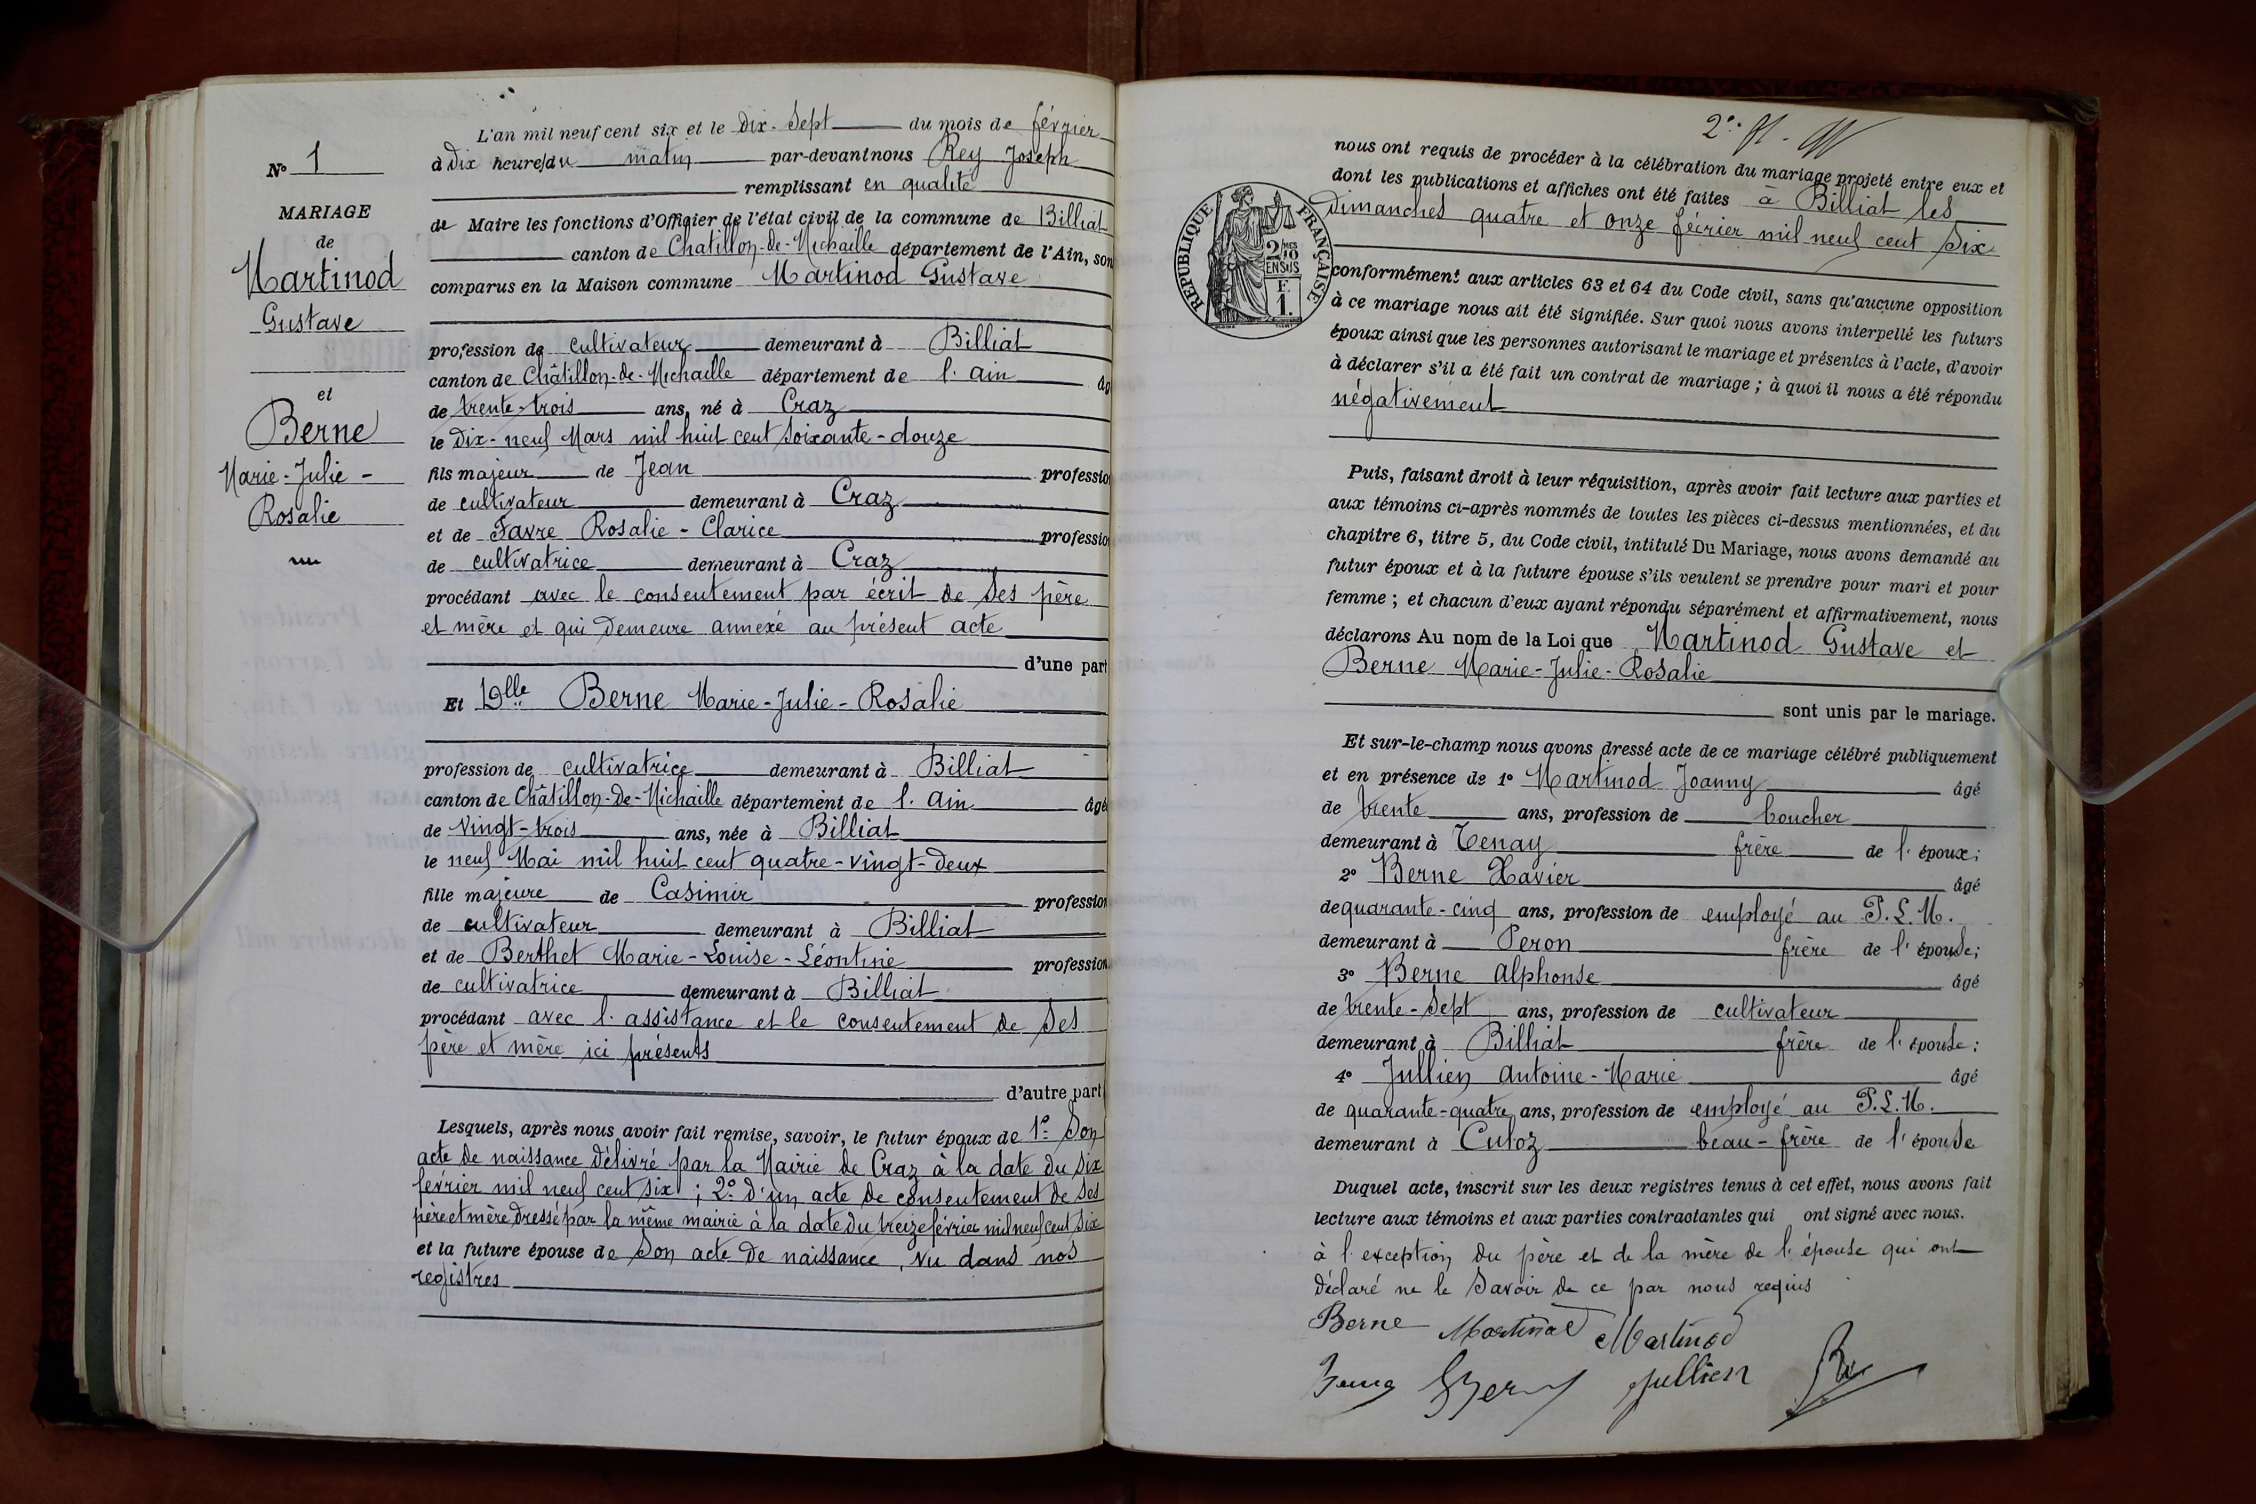 N° 1
MARIAGE
de
Martinod
Gustave
et
Berne
Marie-Julie-
Rosalie
L'an mil neuf cent six et le dix-sept du mois de février
à dix heures du matin par-devant nous Rey Joseph
remplissant en qualité
de Maire les fonctions d'Officier de l'état civil de la commune de Billiat
canton de Chatillon-de-Michaille département de l'Ain, son
comparus en la Maison commune Martinod Gustave
profession de cultivateur demeurant à Billiat
canton de Châtillon-de-Michaille département de l'Ain âg
de trente-trois ans, né à Craz
le dix-neuf Mars mil huit cent soixante-douze
fils majeur de Jean professio
de cultivateur demeurant à Craz
et de Favre Rosalie-Clarice professio
de cultivatrice demeurant à Craz
procédant avec le consentement par écrit de ses père
et mère et qui demeure annexé au présent acte
d'une part
Et Dlle Berne Marie-Julie-Rosalie
profession de cultivatrice demeurant à Billiat
canton de Châtillon-de-Michaille département de l'Ain âgé
de vingt-trois ans, née à Billiat
le neuf Mai mil huit cent quatre-vingt-deux
fille majeure de Casimir profession
de cultivateur demeurant à Billiat
et de Berthet Marie-Louise-Léontine profession
de cultivatrice demeurant à Billiat
procédant avec l'assistance et le consentement de ses
père et mère ici présents
d'autre part
Lesquels, après nous avoir fait remise, savoir, le futur époux de 1° Son
acte de naissance délivré par la Mairie de Craz à la date du six
février mil neuf cent six ; 2° d'un acte de consentement de ses
père et mère dressé par la même mairie à la date du treize février mil neuf cent six
et la future épouse de Son acte de naissance, vu dans nos
registres
2°
RÉPUBLIQUE FRANÇAISE
2 MES 1/2 10
EN SUS
F.
1.
nous ont requis de procéder à la célébration du mariage projeté entre eux et
dont les publications et affiches ont été faites à Billiat les
dimanches quatre et onze février mil neuf cent six
conformément aux articles 63 et 64 du Code civil, sans qu'aucune opposition
à ce mariage nous ait été signifiée. Sur quoi nous avons interpellé les futurs
époux ainsi que les personnes autorisant le mariage et présentes à l'acte, d'avoir
à déclarer s'il a été fait un contrat de mariage ; à quoi il nous a été répondu
négativement
Puis, faisant droit à leur réquisition, après avoir fait lecture aux parties et
aux témoins ci-après nommés de toutes les pièces ci-dessus mentionnées, et du
chapitre 6, titre 5, du Code civil, intitulé Du Mariage, nous avons demandé au
futur époux et à la future épouse s'ils veulent se prendre pour mari et pour
femme ; et chacun d'eux ayant répondu séparément et affirmativement, nous
déclarons Au nom de la Loi que Martinod Gustave et
Berne Marie-Julie-Rosalie
sont unis par le mariage.
Et sur-le-champ nous avons dressé acte de ce mariage célébré publiquement
et en présence de 1° Martinod Joanny âgé
de trente ans, profession de boucher
demeurant à Tenay frère de l'époux ;
2° Berne Xavier âgé
de quarante-cinq ans, profession de employé au P.L.M.
demeurant à Peron frère de l'épouse ;
3° Berne Alphonse âgé
de trente-sept ans, profession de cultivateur
demeurant à Billiat frère de l'épouse ;
4° Jullien Antoine-Marie âgé
de quarante-quatre ans, profession de employé au P.L.M.
demeurant à Culoz beau-frère de l'épouse
Duquel acte, inscrit sur les deux registres tenus à cet effet, nous avons fait
lecture aux témoins et aux parties contractantes qui ont signé avec nous.
à l'exception du père et de la mère de l'épouse qui ont
déclaré ne le savoir de ce par nous requis
Berne Martinod Martinod
Berne Berne Jullien Rey